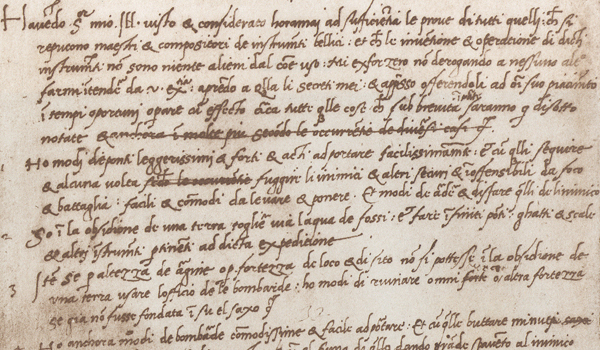 Havēdo Sor mio Ill. visto & considerato horamai ad sufficiētia le prove di tutti quelli ch̄ si
reputono maestri & compositori de instrumti bellici: et ch̄ le invētione & operatione di dicti
instrumti nō sono niente alieni dal cōe uso: mi exforzero nō derogando a nessuno altro
farmi itendr da v. exa: aprēdo a qlla li secreti mei: & apsso offerendoli ad oi suo piacimēto
i tempi oportuni opare cū effecto circa tutte qlle cose ch̄ sub brevita i pte saranno q disotto
notate & anchora i molte piu secōdo le occurrētie de diversi casi
Ho modi de ponti leggerissimi & forti & acti ad portare facilissimamte: et cū qlli seguire
& alcuna volta fuggire li inimici & altri securi & inoffensibili da foco
& battaglia: facili & cōmodi da levare & ponere. Et modi de arder & disfare qlli de linimico
2 So i la obsidione de una terra toglier via laqua de fossi: et fare ifiniti pōti ghatti & scale
& altri istrumti ptinēti ad dicta expeditione
3 Itē se p altezza de argine o p fortezza de loco & di sito nō si potesse i la obsidione de
una terra usare lofficio de le bombarde: ho modi di ruinare omni forte o altra fortezza
se gia nō fusse fondata i su el saxo
Ho anchora modi de bombarde cōmodissime & facile ad portare: Et cū qlle buttare minuti saxi